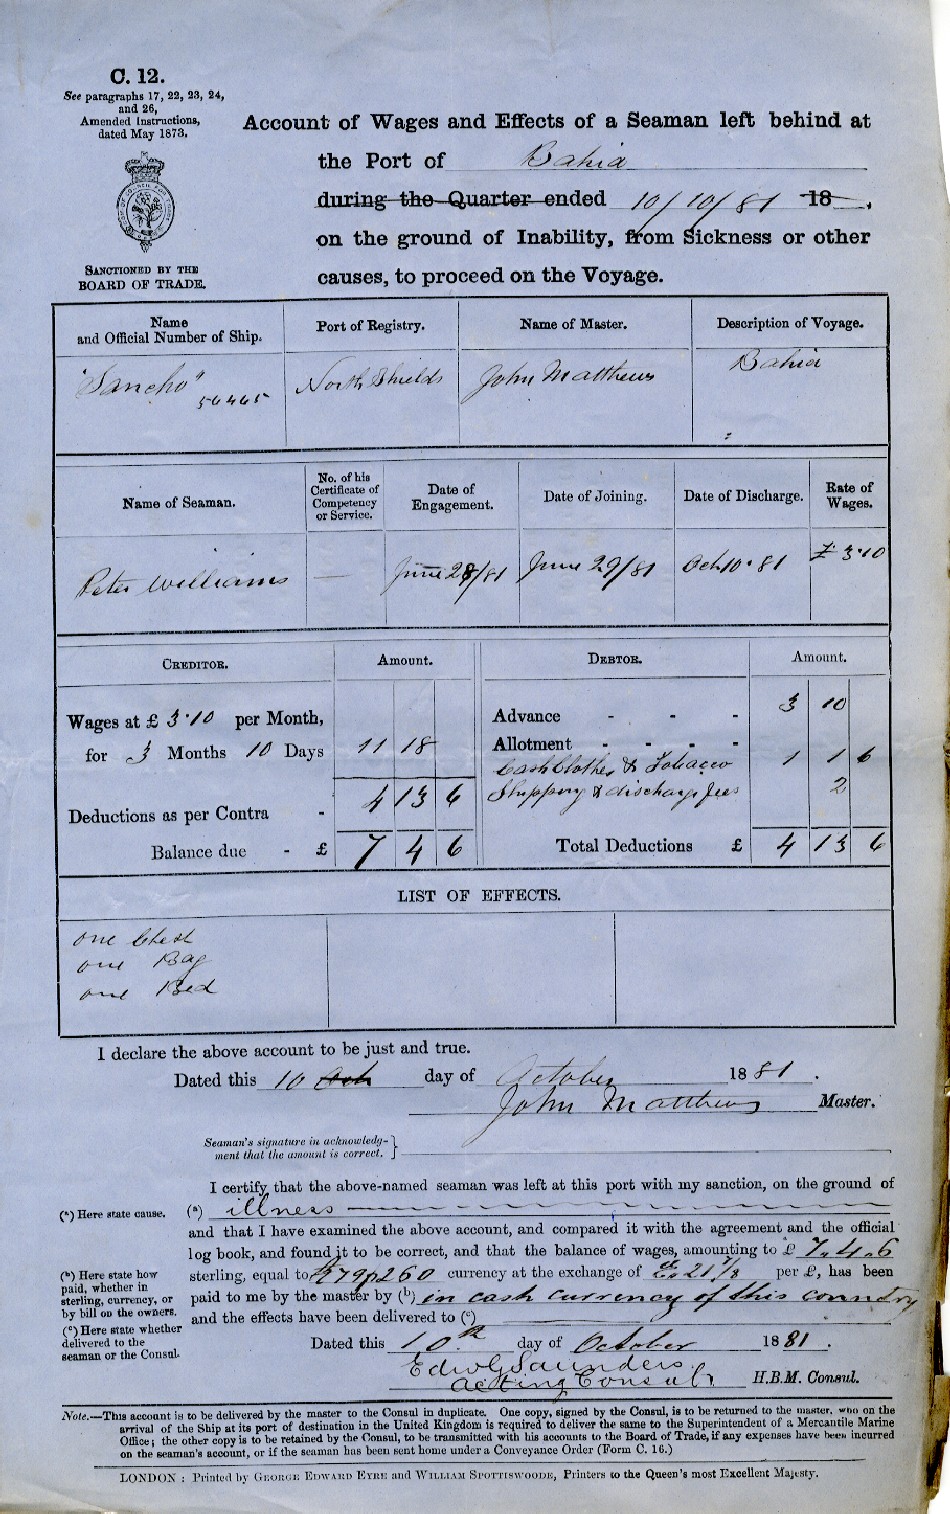 C. 12.
See paragraphs 17, 22, 23, 24,
and 26,
Amended Instructions,
dated May 1873.
SANCTIONED BY THE
BOARD OF TRADE.
Account of Wages and Effects of a Seaman left behind at
the Port of Bahia
during the Quarter ended 10/10/81 18 ,
on the ground of Inability, from Sickness or other
causes, to proceed on the Voyage.
Name
and Official Number of Ship.
Port of Registry.
Name of Master.
Description of Voyage.
"Sancho"
56465
North Shields
John Matthews
Bahia
Name of Seaman.
No. of his
Certificate of
Competency
or Service.
Date of
Engagement.
Date of Joining.
Date of Discharge.
Rate of
Wages.
Peter Williams
—
June 28/81
June 29/81
Oct 10.81
£3.10
CREDITOR.
Amount.
DEBTOR.
Amount.
Wages at £ 3.10 per Month,
for 3 Months 10 Days 11 18
Deductions as per Contra - 4 13 6
Balance due - £ 7 4 6
Advance - - - 3 10
Allotment - - - -
Cash Clothes & Tobacco 1 1 6
Shipping & discharge fees 2
Total Deductions £ 4 13 6
LIST OF EFFECTS.
one Chest
one Bag
one Bed
I declare the above account to be just and true.
Dated this 10 Oct day of October 1881.
John Matthews Master.
Seaman's signature in acknowledg-
ment that the amount is correct.
I certify that the above-named seaman was left at this port with my sanction, on the ground of
(a) Here state cause.
(a) illness
and that I have examined the above account, and compared it with the agreement and the official
log book, and found it to be correct, and that the balance of wages, amounting to £ 7.4.6
sterling, equal to 79p260 currency at the exchange of 21 7/8 per £, has been
paid to me by the master by (b) in cash currency of this country
and the effects have been delivered to (c)
(b) Here state how
paid, whether in
sterling, currency, or
by bill on the owners.
(c) Here state whether
delivered to the
seaman or the Consul.
Dated this 10th day of October 1881.
Edw G Saunders
Acting Consul H.B.M. Consul.
Note.—This account is to be delivered by the master to the Consul in duplicate. One copy, signed by the Consul, is to be returned to the master, who on the
arrival of the Ship at its port of destination in the United Kingdom is required to deliver the same to the Superintendent of a Mercantile Marine
Office; the other copy is to be retained by the Consul, to be transmitted with his accounts to the Board of Trade, if any expenses have been incurred
on the seaman's account, or if the seaman has been sent home under a Conveyance Order (Form C. 16.)
LONDON: Printed by GEORGE EDWARD EYRE and WILLIAM SPOTTISWOODE, Printers to the Queen's most Excellent Majesty.